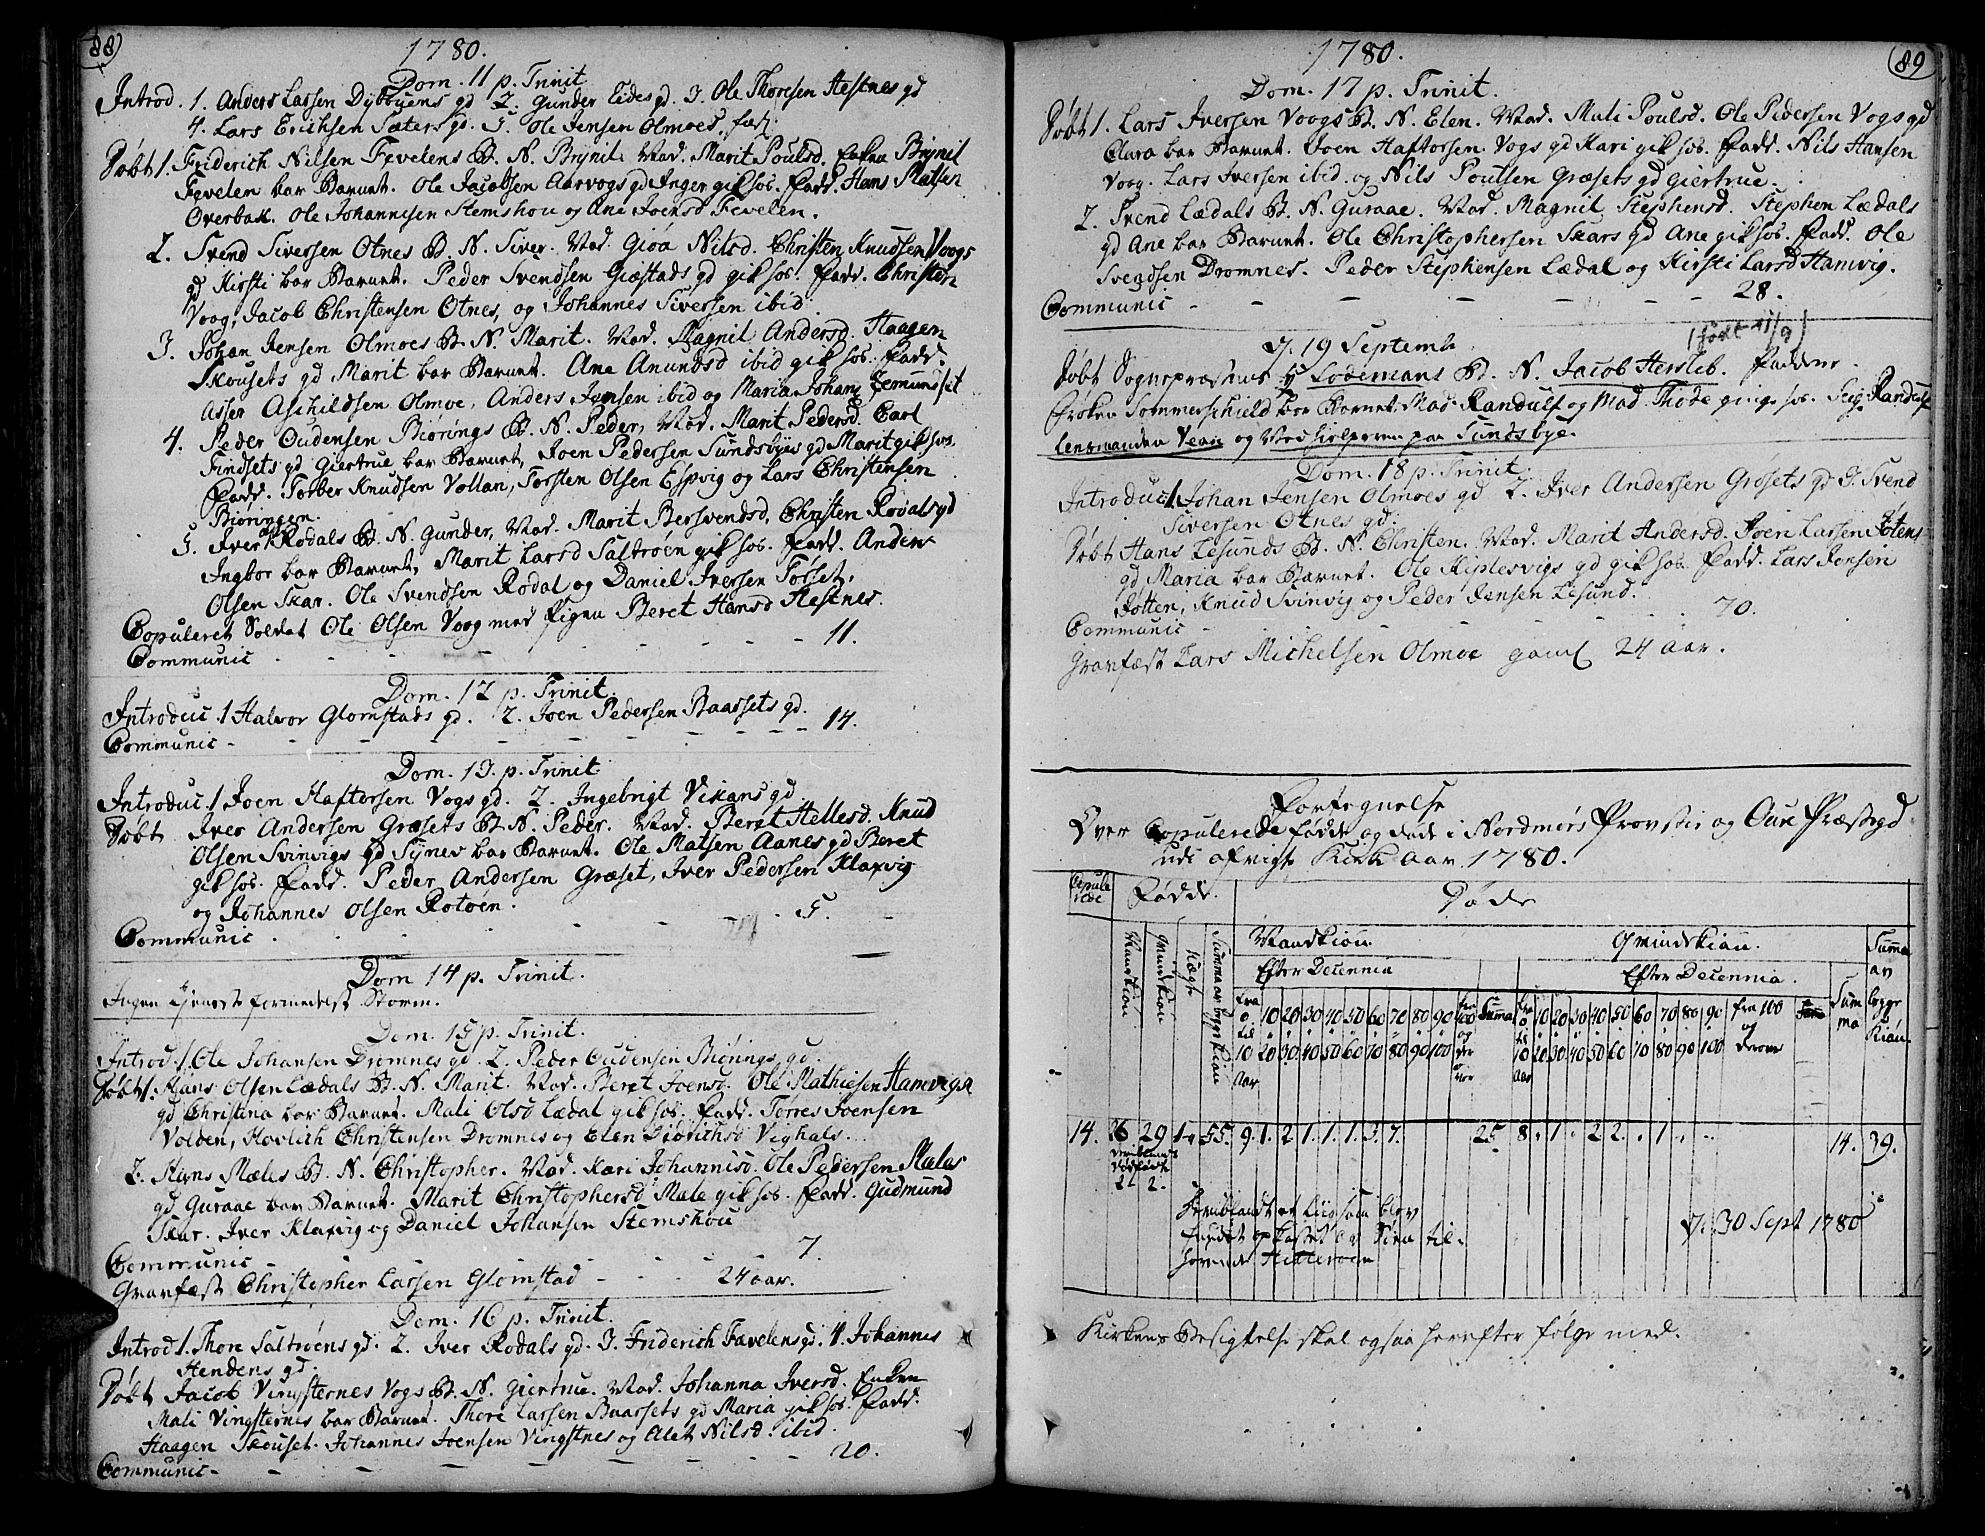 88
1780.
Dom. 11 p. Trinit
Introd. 1. Anders Larsen Dybbyens gd 2. Gunder Eides gd. 3. Ole Thoresen Hestnes gd
4. Lars Erichsen Sæters gd. 5. Ole Jensen Olmoes, fæst.
Døbt 1. Friderich Nilsen Fevelens B. N. Brynil. Mod. Marit Poulsd. Enken Brynil
Fevelen bar Barnet. Ole Jacobsen Aarvogs gd Inger gik hos. Fadd. Hans Matsen
Overbak. Ole Johannesen Stemshou og Ane Joensd Fevelen.
2. Svend Siversen Otnes B. N. Siver. Mod. Gioa Nilsd. Christen Knudsen Voogs
gd Kirsti bar Barnet. Peder Svendsen Giæstads gd gik hos. Fadd. Christen
Voog, Jacob Christensen Otnes, og Johannes Siversen ibid.
3. Johan Jensen Olmoes B. N. Marit. Mod. Magnil Andersd. Haagen
Skousets gd Marit bar Barnet. Ane Anundsd ibid gik hos. Fadd.
Asser Aschildsen Olmoe, Anders Jensen ibid og Maria Johans Remundset
4. Peder Oudensen Biørings B. N. Peder, Mod. Marit Pedersd. Carl
Findsets gd Giertrue bar Barnet, Joen Pedersen Sundsbyes gd Marit gik hos
Fadd. Torber Knudsen Vollan, Torsten Olsen Espvig og Lars Christensen
Biøringen.
5. Iver Rodals B. N. Gunder, Mod. Marit Bersvendsd, Christen Rodals gd
Ingbor bar Barnet, Marit Larsd Saltrøen gik hos. Fadd. Anders
Olsen Skar. Ole Svendsen Rodal og Daniel Iversen Tosset.
Copuleret Soldat Ole Olsen Voog med Pigen Beret Hansd Hestnes.
Communic - - - - - - - 11.
Dom. 12 p. Trinit.
Introduc. 1 Halvor Glomstads gd. 2. Joen Pedersen Baassets gd.
Communic - - - - - - - 14.
Dom. 13. p. Trinit
Introduc. 1 Joen Haftorsen Vogs gd. 2. Ingebrigt Vikans gd
Døbt Iver Andersen Græsets B. N. Peder. Mod. Beret Hellesd. Knud
Olsen Svinvigs gd Synev bar Barnet. Ole Matsen Aanes gd Beret
gik hos. Fadd. Peder Andersen Græset, Iver Pedersen Klaxvig
og Johannes Olsen Rotoen.
Communic - - - - - 5.
Dom 14 p. Trinit.
Ingen Tieneste formedelst Storm.
Dom. 15 p. Trinit.
Introd. 1. Ole Johansen Dromnes gd. 2. Peder Oudensen Biørings gd.
Døbt 1. Hans Olsen Lædals B. N. Marit. Mod. Beret Joensd. Ole Mathiesen Hamvigs
gd Christina bar Barnet. Mali Olsd Lædal gik hos. Fadd. Torres Joensen
Volden, Hovlich Christensen Dromnes og Elen Diørichsd Vighals.
2. Hans Mæles B. N. Christopher. Mod. Kari Johannisd. Ole Pedersen Mæles
gd Guraae bar Barnet. Marit Christophersd Mæle gik hos. Fadd. Gudmund
Skar. Iver Klaxvig og Daniel Johansen Stemshou
Communic - - - - - 7.
Gravfæst Christopher Larsen Glomstad - - - 24 aar.
Dom. 16 p. Trinit.
Introd 1. Thore Saltrøens gd. 2. Iver Rodals gd. 3. Friderich Fævelens gd. 4. Johannes
Hendens gd.
Døbt Jacob Vingsternes Vogs B. N. Giertrue. Mod. Johanna Iversd. Enken
Mali Vingsternes bar Barnet. Thore Larsen Baassets gd Maria gik hos. Fadd.
Haagen Skouset. Johannes Joensen Vingstnes og Alet Nilsd. ibid.
Communic - - - - - - - 20.
89
1780.
Dom. 17 p. Trinit.
Døbt 1. Lars Iversen Voogs B. N. Elen. Mod. Mali Poulsd. Ole Pedersen Vogs gd
Aura bar Barnet. Joen Haftorsen Vogs gd Kari gik hos. Fadd. Nils Hansen
Voog. Lars Iversen ibid. og Nils Poulsen Græsets gd Giertrue.
2. Svend Lædals B. N. Guraae. Mod. Magnil Stephensd. Stephen Lædals
gd Ane bar Barnet. Ole Christophersen Skars gd Ane gik hos. Fadd. Ole
Svendsen Dromnes. Peder Stephensen Lædal og Kirsti Larsd Hamvig.
Communic - - - - - - - 28.
d. 19 Septemb. (født 11/9)
Døbt Sognepræstens Hr Lodemans B. N. Jacob Hersleb. Faddere
Frøken Sommerschield bar Barnet. Mad. Randulf og Mad. Thode ging hos. Seig. Randulf
Lensmanden Vean og Medhielperen paa Sundsbye.
Dom. 18 p. Trinit.
Introduc. 1 Johan Jensen Olmoes gd 2. Iver Andersen Græsets gd 3. Svend
Siversen Otnes gd.
Døbt Hans Lesunds B. N. Christen. Mod. Marit Andersd. Joen Larsen Jøtens
gd Maria bar Barnet. Ole Kiplesvigs gd gik hos. Fadd. Lars Jensen
Jøtten, Knud Svinvig og Peder Jensen Lesund.
Communic - - - - - - 70.
Gravfæst Lars Michelsen Olmoe gaml 24 aar.
Fortegnelse
Over Copulerede fødde og døde i Nordmørs Provstie og Oure Præstegd
udi afvigte Kirke Aar 1780.
Copulerede Fødde. Døde
Mandkiøn Qvindkiøn Uægte Summa av begge Kiøn
Mandkiøn. Qvindekiøn. Summa av begge Kiøn.
Efter Decennia Efter Decennia.
fra 0 til 10 Aar 10 20 20 30 30 40 40 50 50 60 60 70 70 80 80 90 90 100 Summa
fra 0 til 10 Aar 10 20 20 30 30 40 40 50 50 60 60 70 70 80 80 90 90 100 fra 100 og derover Summa
14. 26. 29 1. 55. 9. 1. 2. 1. 1. 1. 3. 7. 25 8. 1. 2 2. 1. 14. 39.
deriblandt dødfødde
2 2.
Heriblandt et Liig som blev
fundet opkastet av Søen til-
hørende Hitterøen
d. 30 Sept 1780
Kirkens Besigtelse skal ogsaa herefter følge med.